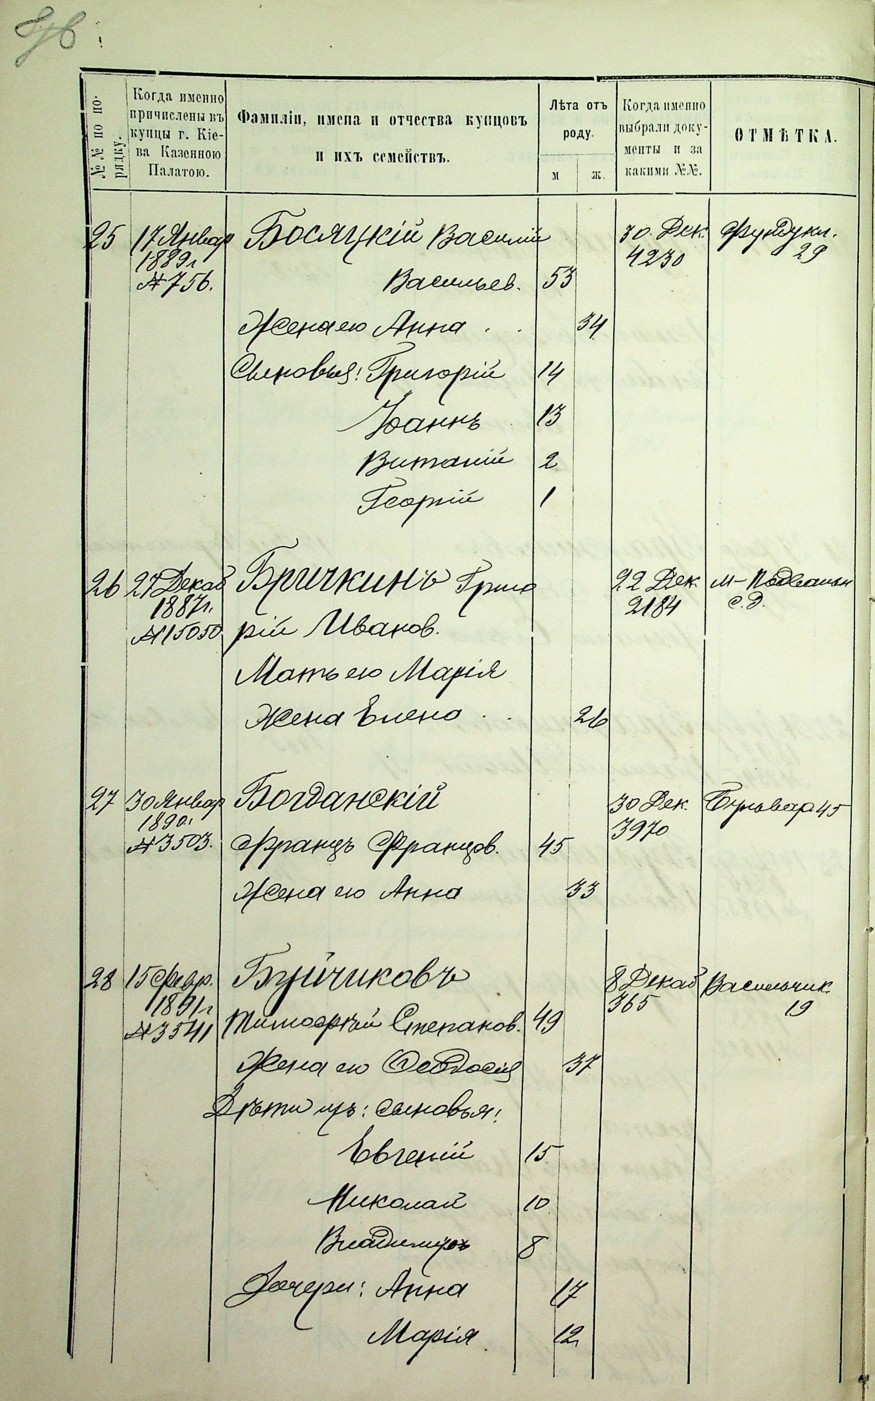 №№ по по-
рядку.
Когда именно
причислены въ
купцы г. Кіе-
ва Казенною
Палатою.
Фамиліи, имена и отчества купцовъ
и ихъ семействъ.
Лѣта отъ
роду.
м
ж.
Когда именно
выбрали доку-
менты и за
какими №№.
ОТМѢТКА.
25 17 Январ Босяцкій Василій 30 Дек. Фундукл.
1889 г. 4230 29
№ 756. Васильев. 53
Жена его Анна . . 34
Сыновья: Григорій 14
Іоаннъ 13
Виталій 2
Георгій 1
26 27 Декаб Бричкинъ Григо 22 Дек
1887 г. 2184 с. д.
№ 15050 рій Иванов.
Мать его Марія
Жена Елена . . 26
27 30 Январ Богданскій 30 Дек. Бульвар 45
1890 г. 3970
№ 3503. Францъ Францов. 45
Жена его Анна 33
28 15 Февр. Буйчиковъ 8 Декаб Васильчик.
1891 г. 365 19
№ 3541 Тимофей Степанов. 49
Жена его Феодосія 37
Дѣти ихъ: сыновья:
Евгеній 15
Николай 10
Владиміръ 8
Дочери: Анна 17
Марія 12